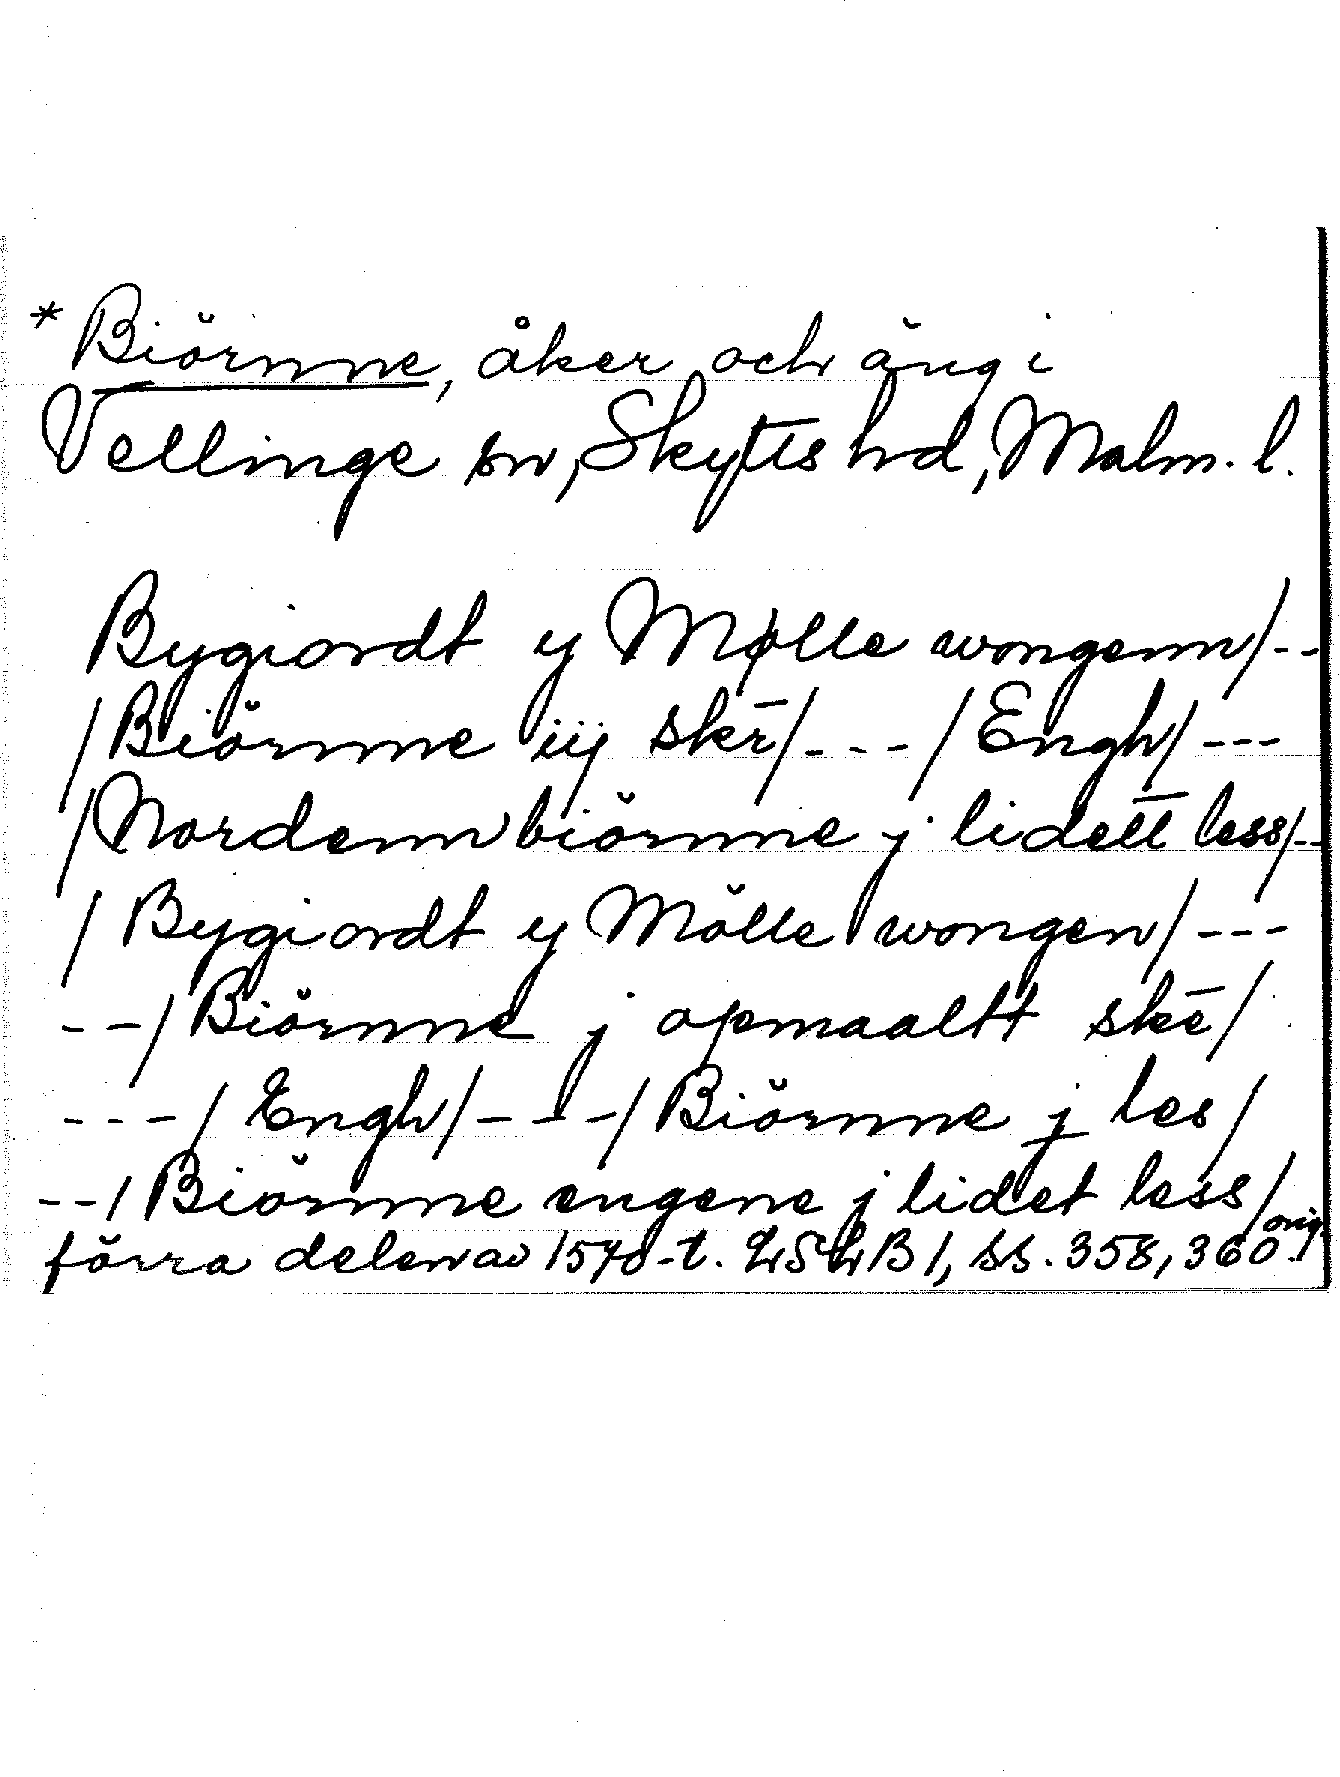 * Biörnne, åker och äng i
Vellinge sn, Skytts hd, Malm. l.
Bygiordt y Mølle wongenn/--
/Biörnne iij skē/---/Engh/---
/Nordenn biörnne j lidett less/--
/Bygiordt y Mölle wongen/---
--/Biörnne j opmaaltt skē/
---/Engh/---/Biörnne j les/
--/Biörnne engene j lidet less/
förra delen av 1570-t. LSLB 1, ss. 358, 360. orig.